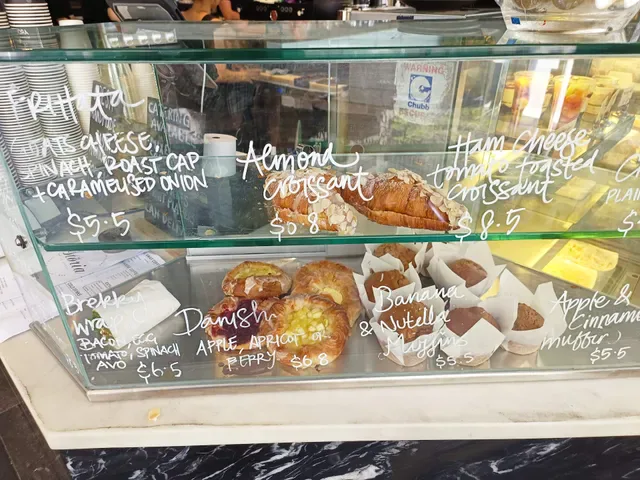 Frittata
GOATS CHEESE,
SPINACH, ROAST CAP
+ CARAMELISED ONION
$5.5
Almond
Croissant
$6.8
Ham Cheese
tomato toasted
Croissant
$8.5
PLAIN
WARNING
Chubb
Brekky
wrap
BACON, EGG
TOMATO, SPINACH
AVO $6.5
Danish
APPLE, APRICOT OR
BERRY $6.8
Banana
& Nutella
Muffins
$5.5
Apple &
Cinnamon
muffin
$5.5